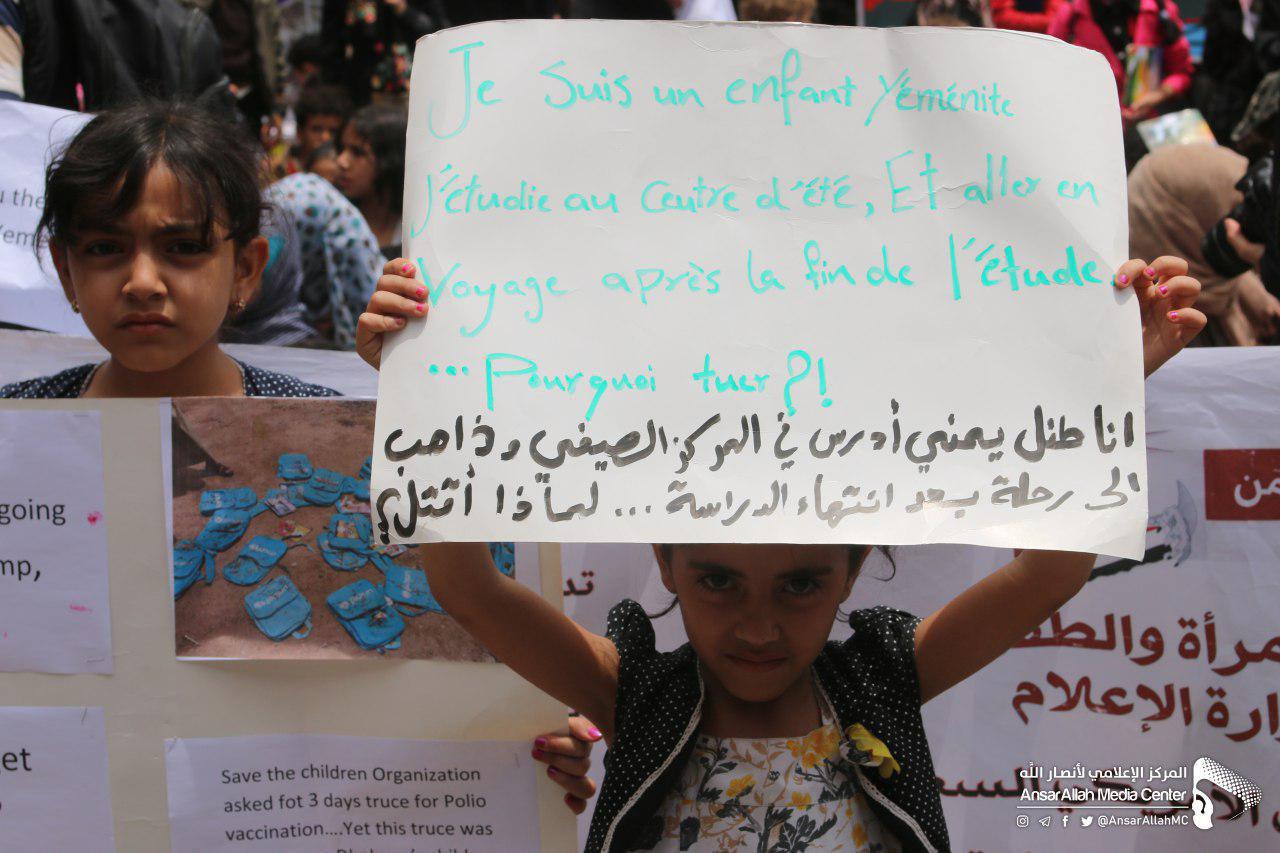 Je suis un enfant Yéménite
J'étudie au Centre d'été, Et aller en
Voyage après la fin de l'étude
... Pourquoi tuer?!
انا طفل يمني أدرس في المركز الصيفي وذاهب
الى رحلة بعد انتهاء الدراسة ... لماذا أقتل؟
u the
going
mp,
get
Save the children Organization
asked fot 3 days truce for Polio
vaccination....Yet this truce was
من
مرأة والطف
ارة الإعلام
المركز الإعلامي لأنصار الله
AnsarAllah Media Center
@AnsarAllahMC